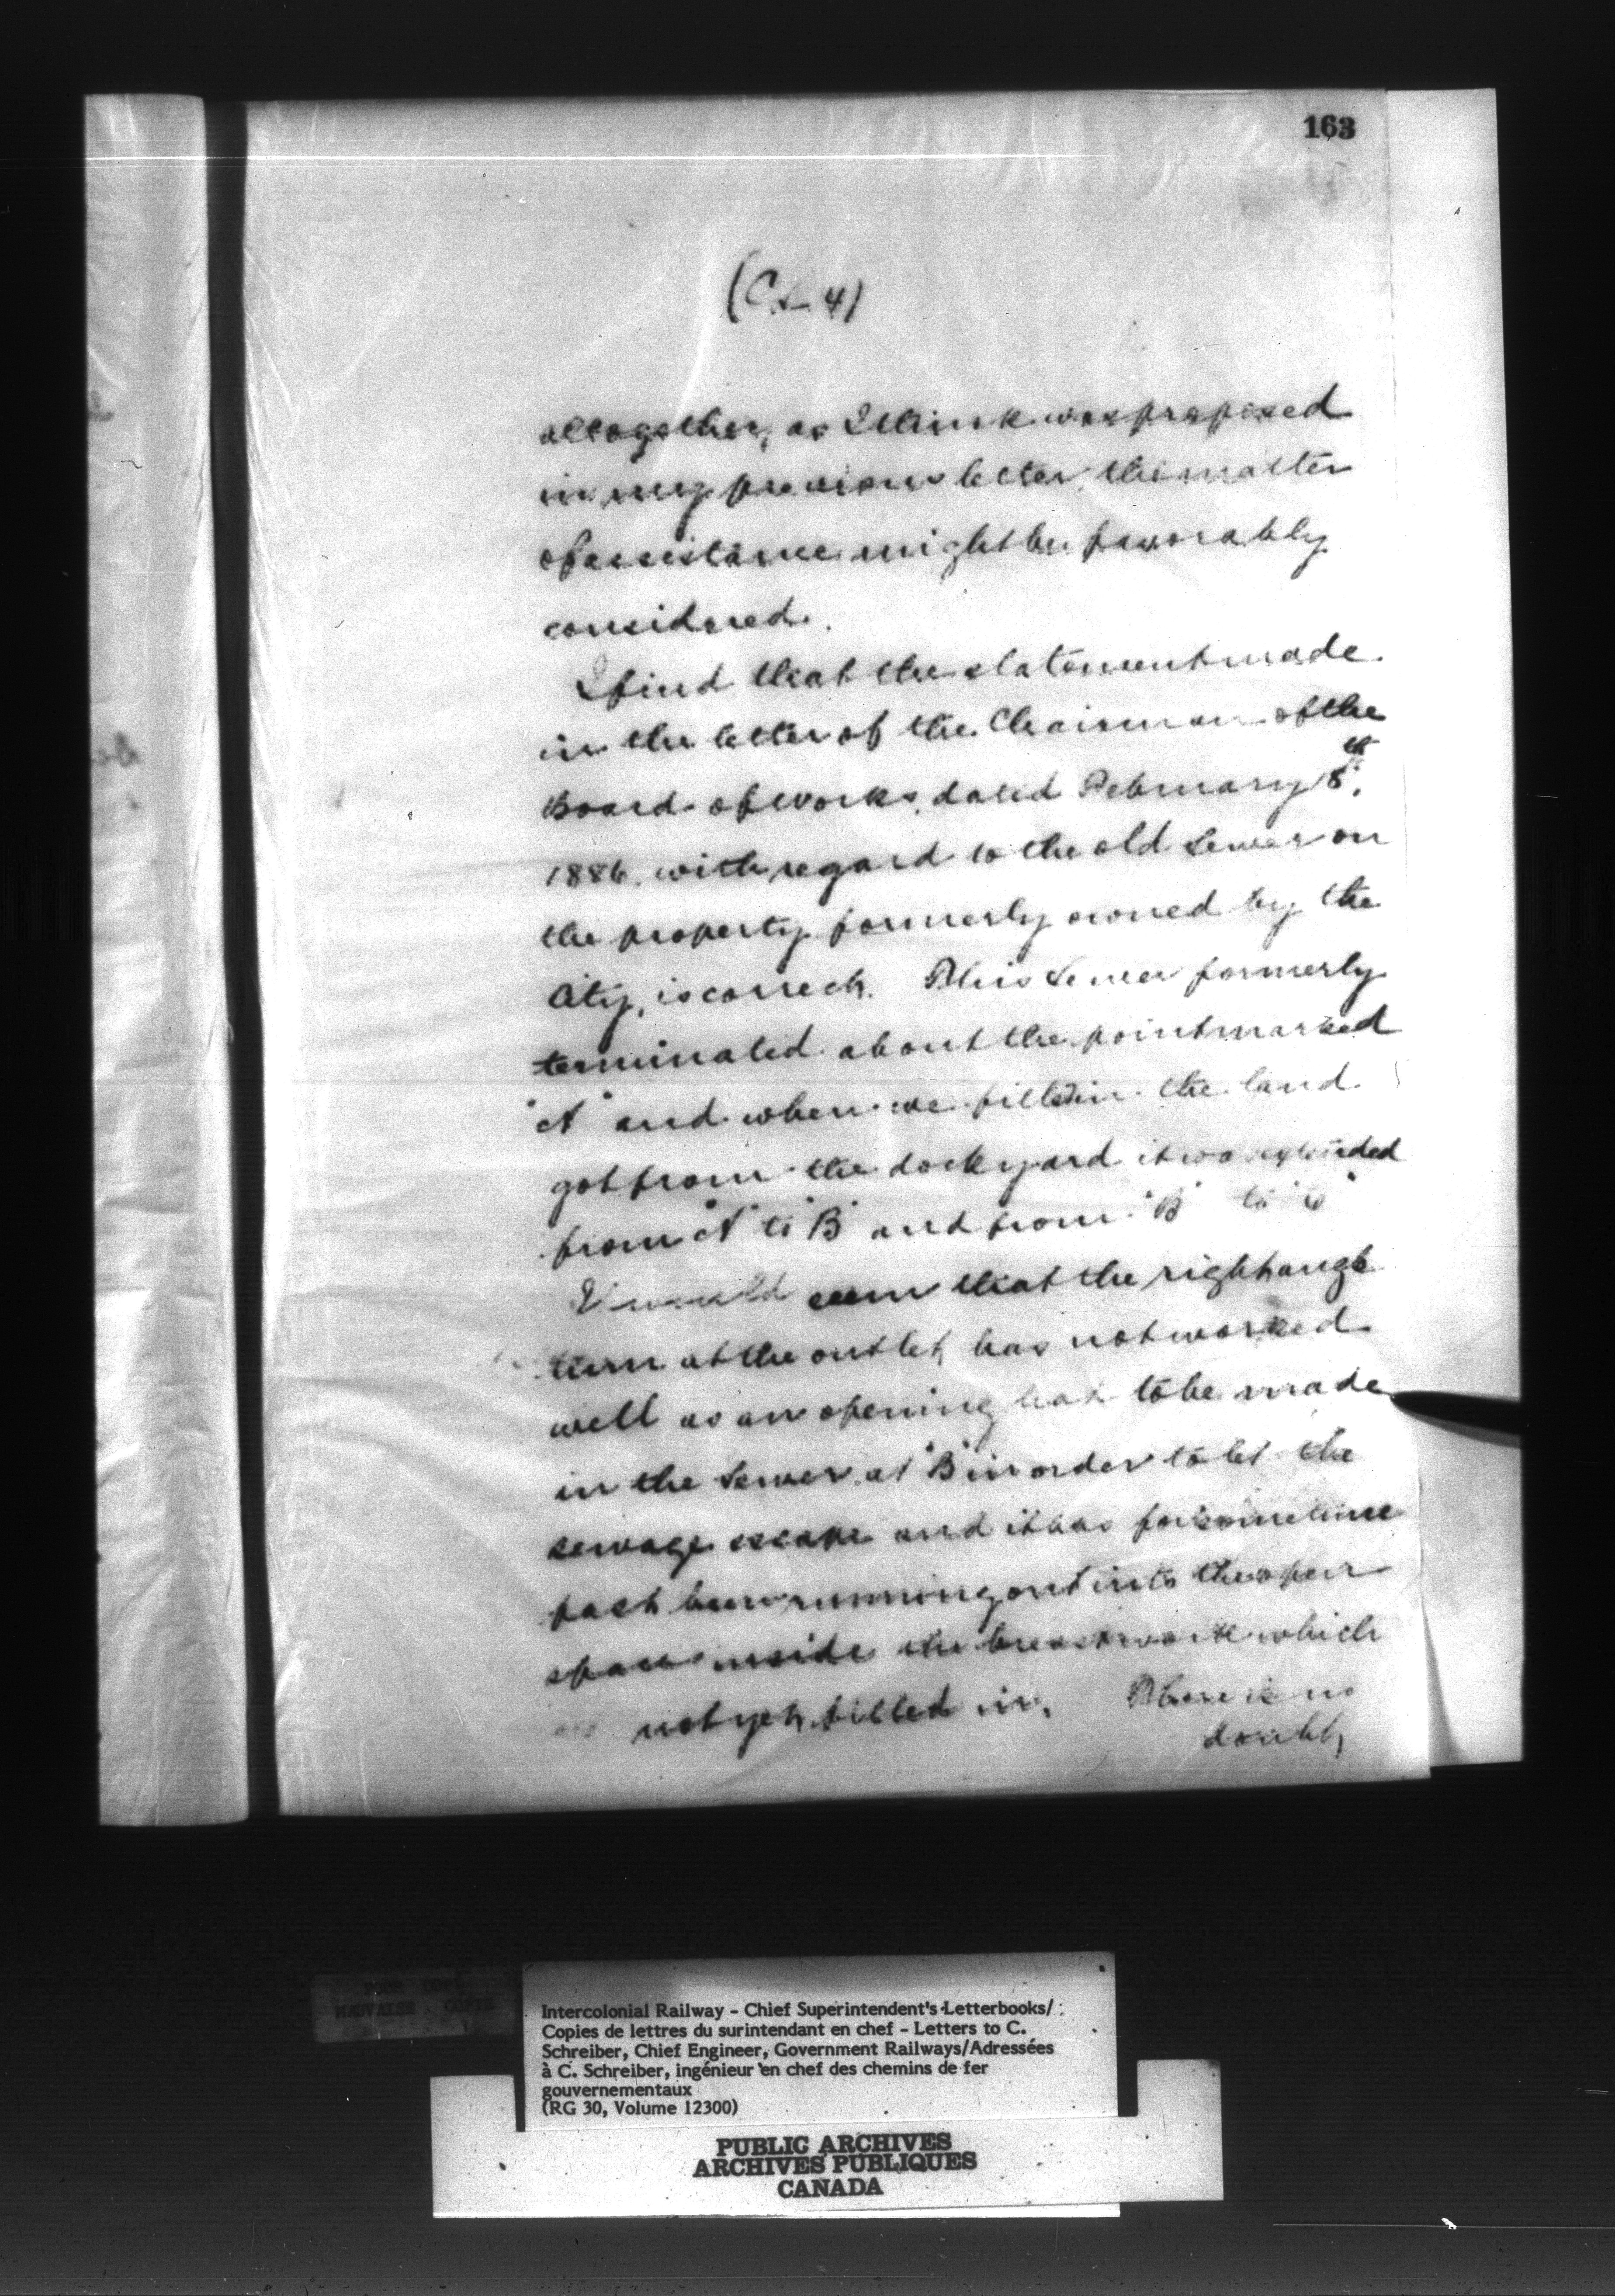 163
altogether, as I think was proposed
in my previous letter, the matter
of assistance might be favorably
considered.
I find that the statement made
in the letter of the Chairman of the
Board of Works, dated February 8th,
1886, with regard to the old Sewer on
the property formerly owned by the
City, is correct. This Sewer formerly
terminated about the point marked
"A" and when we filled in the land
got from the dockyard it was extended
from "A" to "B" and from "B" to "C"
It would seem that the right angle
turn at the outlet, has not worked
well as an opening had to be made
in the Sewer at "B" in order to let the
sewage escape and it has for some time
past been running out into the open
space inside the breastwork which
not yet, filled in. There is no
doubt,
POOR COPY
MAUVAISE COPIE
Intercolonial Railway - Chief Superintendent's Letterbooks/
Copies de lettres du surintendant en chef - Letters to C.
Schreiber, Chief Engineer, Government Railways/Adressées
à C. Schreiber, ingénieur en chef des chemins de fer
gouvernementaux
(RG 30, Volume 12300)
PUBLIC ARCHIVES
ARCHIVES PUBLIQUES
CANADA